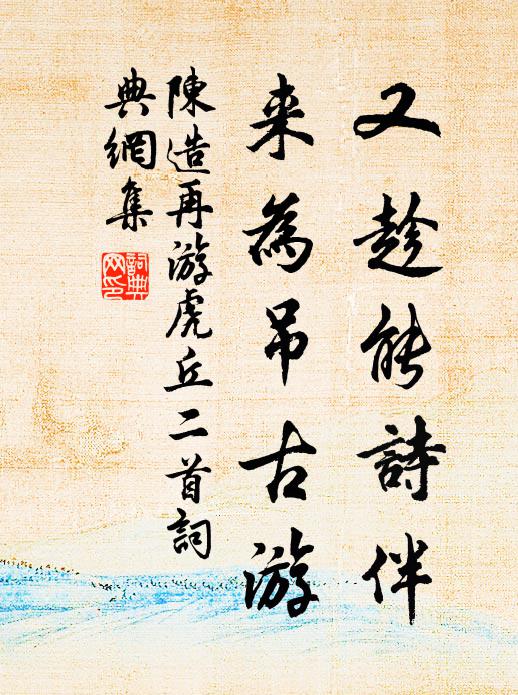 又趁能詩伴
来為吊古游
陳造再游虎丘二首詞
典網集
詞典
网印